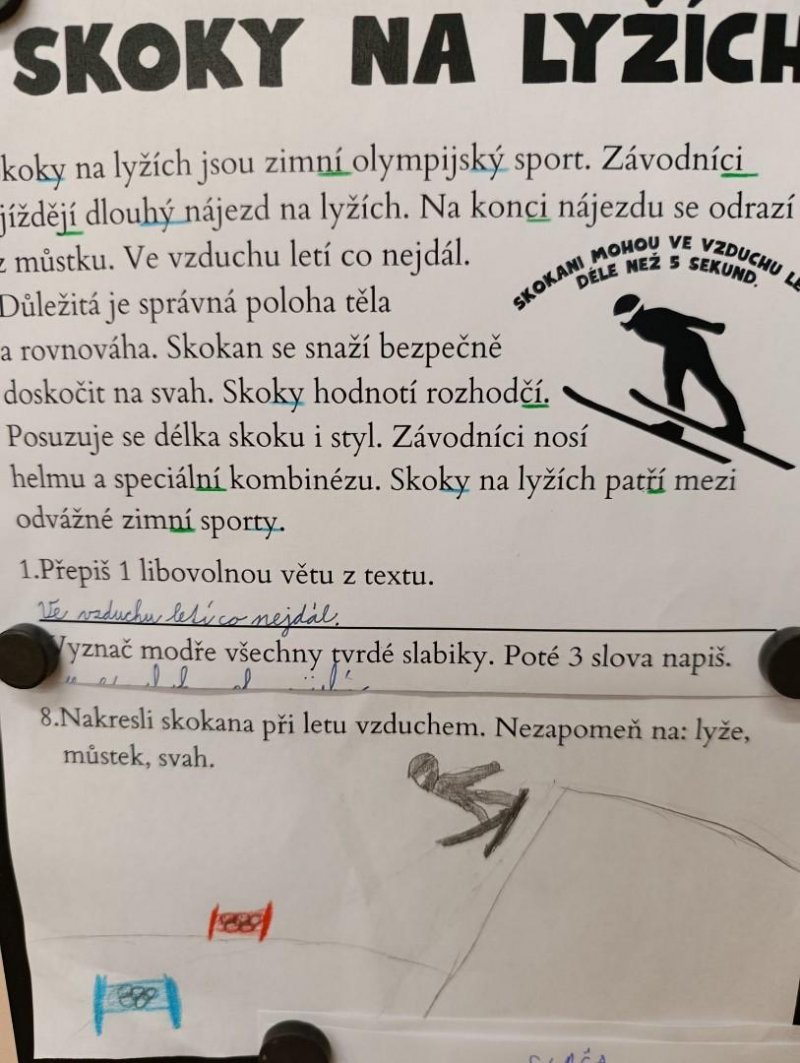 SKOKY NA LYŽÍCH
koky na lyžích jsou zimní olympijský sport. Závodníci
jíždějí dlouhý nájezd na lyžích. Na konci nájezdu se odrazí
z můstku. Ve vzduchu letí co nejdál.
SKOKANI MOHOU VE VZDUCHU LE
DÉLE NEŽ 5 SEKUND.
Důležitá je správná poloha těla
a rovnováha. Skokan se snaží bezpečně
doskočit na svah. Skoky hodnotí rozhodčí.
Posuzuje se délka skoku i styl. Závodníci nosí
helmu a speciální kombinézu. Skoky na lyžích patří mezi
odvážné zimní sporty.
1.Přepiš 1 libovolnou větu z textu.
Ve vzduchu letí co nejdál.
Vyznač modře všechny tvrdé slabiky. Poté 3 slova napiš.
8.Nakresli skokana při letu vzduchem. Nezapomeň na: lyže,
můstek, svah.